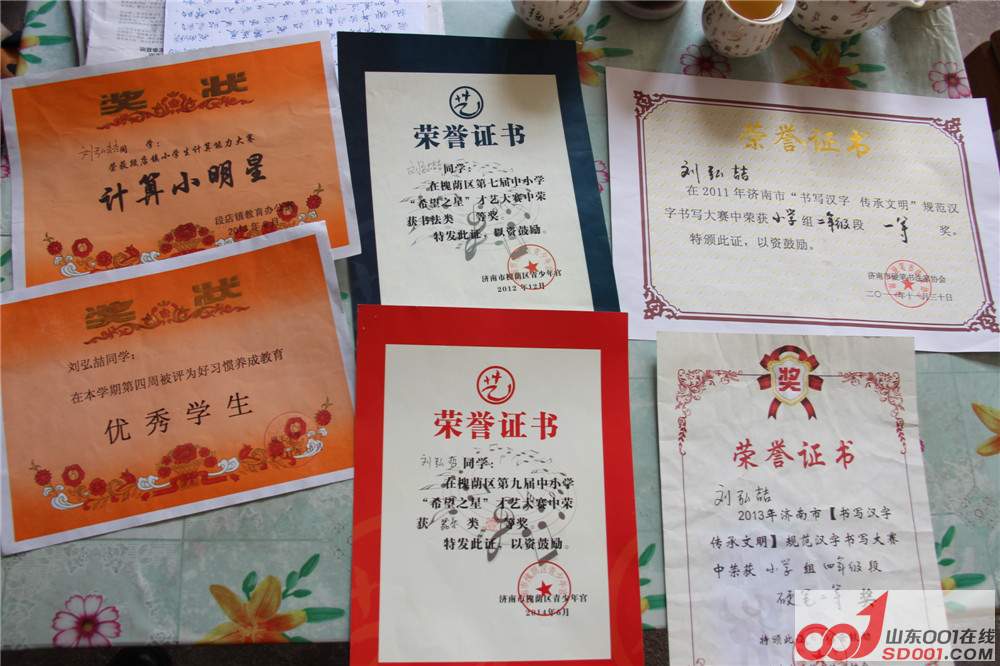 奖状
刘弘喆同学：
荣获段店镇小学生计算能力大赛
计算小明星
段店镇教育办公室
奖状
刘弘喆同学：
在本学期第四周被评为好习惯养成教育
优秀学生
荣誉证书
刘弘喆同学：
在槐荫区第七届中小学
“希望之星”才艺大赛中荣
获书法类 等奖
特发此证，以资鼓励。
济南市槐荫区青少年宫
2012年12月
荣誉证书
刘弘喆同学：
在槐荫区第九届中小学
“希望之星”才艺大赛中荣
获 类 等奖
特发此证，以资鼓励。
济南市槐荫区青少年宫
2014年6月
荣誉证书
刘弘喆
在2011年济南市“书写汉字 传承文明”规范汉
字书写大赛中荣获小学组二年级段 一等 奖。
特颁此证，以资鼓励。
济南市硬笔书法家协会
二〇一一年十一月三十日
奖
荣誉证书
刘弘喆
2013年济南市【书写汉字
传承文明】规范汉字书写大赛
中荣获 小学 组 四年级 段
硬笔二等 奖
特颁此
山东001在线
SD001.COM